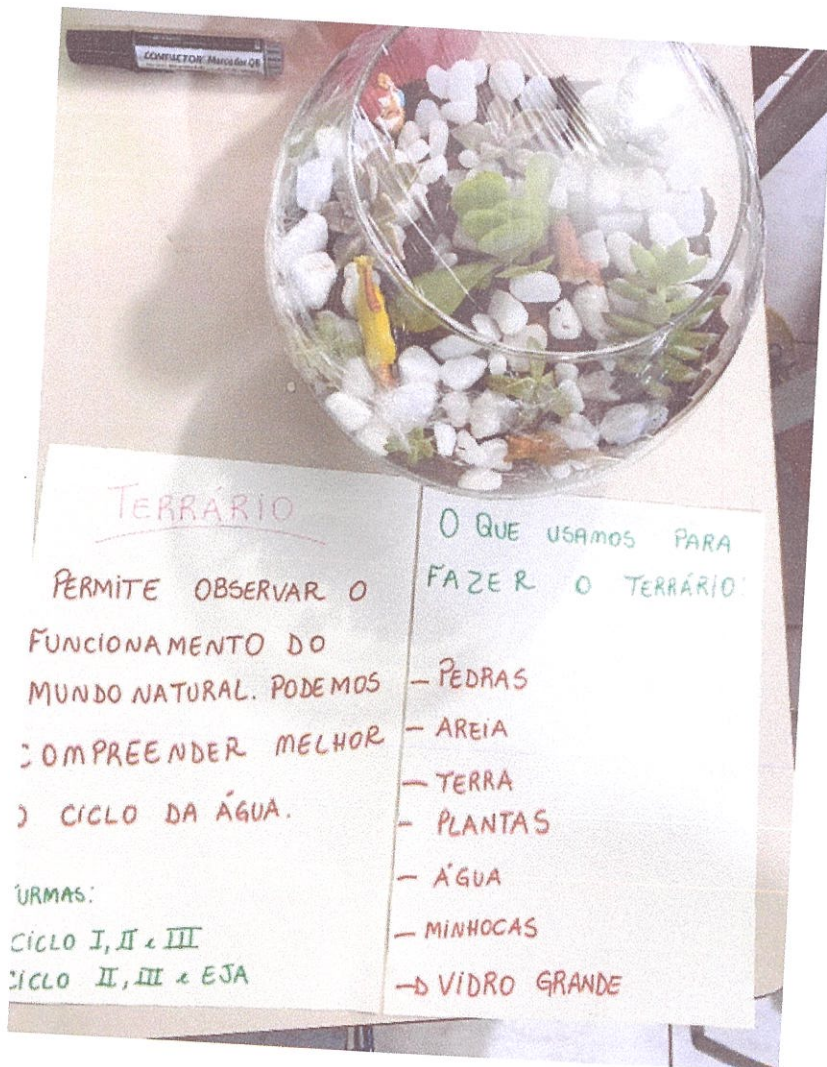 COMPACTOR Marcador
TERRÁRIO
PERMITE OBSERVAR O
FUNCIONAMENTO DO
MUNDO NATURAL. PODEMOS
COMPREENDER MELHOR
O CICLO DA ÁGUA.
TURMAS:
CICLO I, II e III
CICLO II, III e EJA
O QUE USAMOS PARA
FAZER O TERRÁRIO:
– PEDRAS
– AREIA
– TERRA
– PLANTAS
– ÁGUA
– MINHOCAS
– VIDRO GRANDE